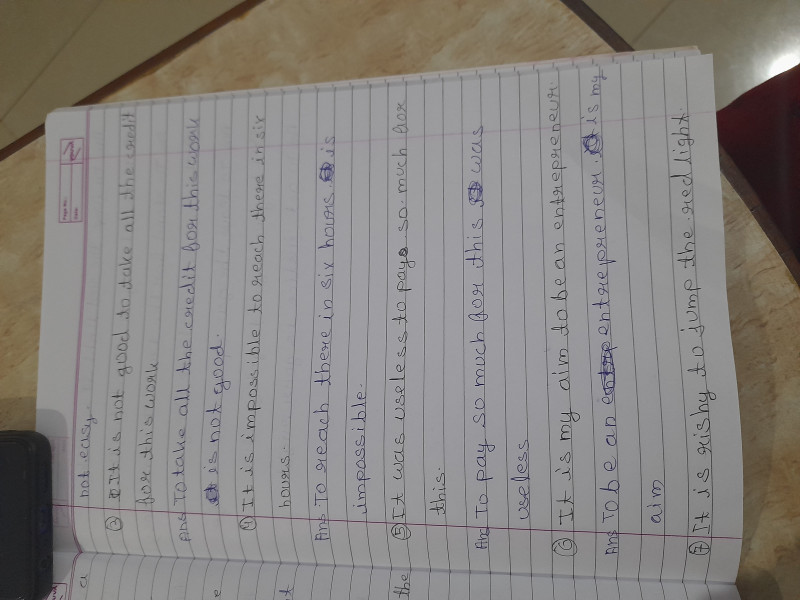 Page No.
Date
not easy.
③ It is not good to take all the credit
for this work
Ans To take all the credit for this work
is not good.
④ It is impossible to reach there in six
hours.
Ans To reach there in six hours is
impossible.
⑤ It was useless to pay so much for
this.
Ans To pay so much for this was
useless
⑥ It is my aim to be an entrepreneur.
Ans To be an entrepreneur is my
aim
⑦ It is risky to jump the red light.
a
e
t
the